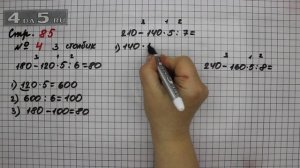 4DA5.RU
Стр. 85
№ 4 3 столбик
3 1 2
180-120·5:6=80
1) 120·5=600
2) 600:6=100
3) 180-100=80
3 1 2
210-140·5:7=
1) 140·
3 1 2
240-160·5:8=